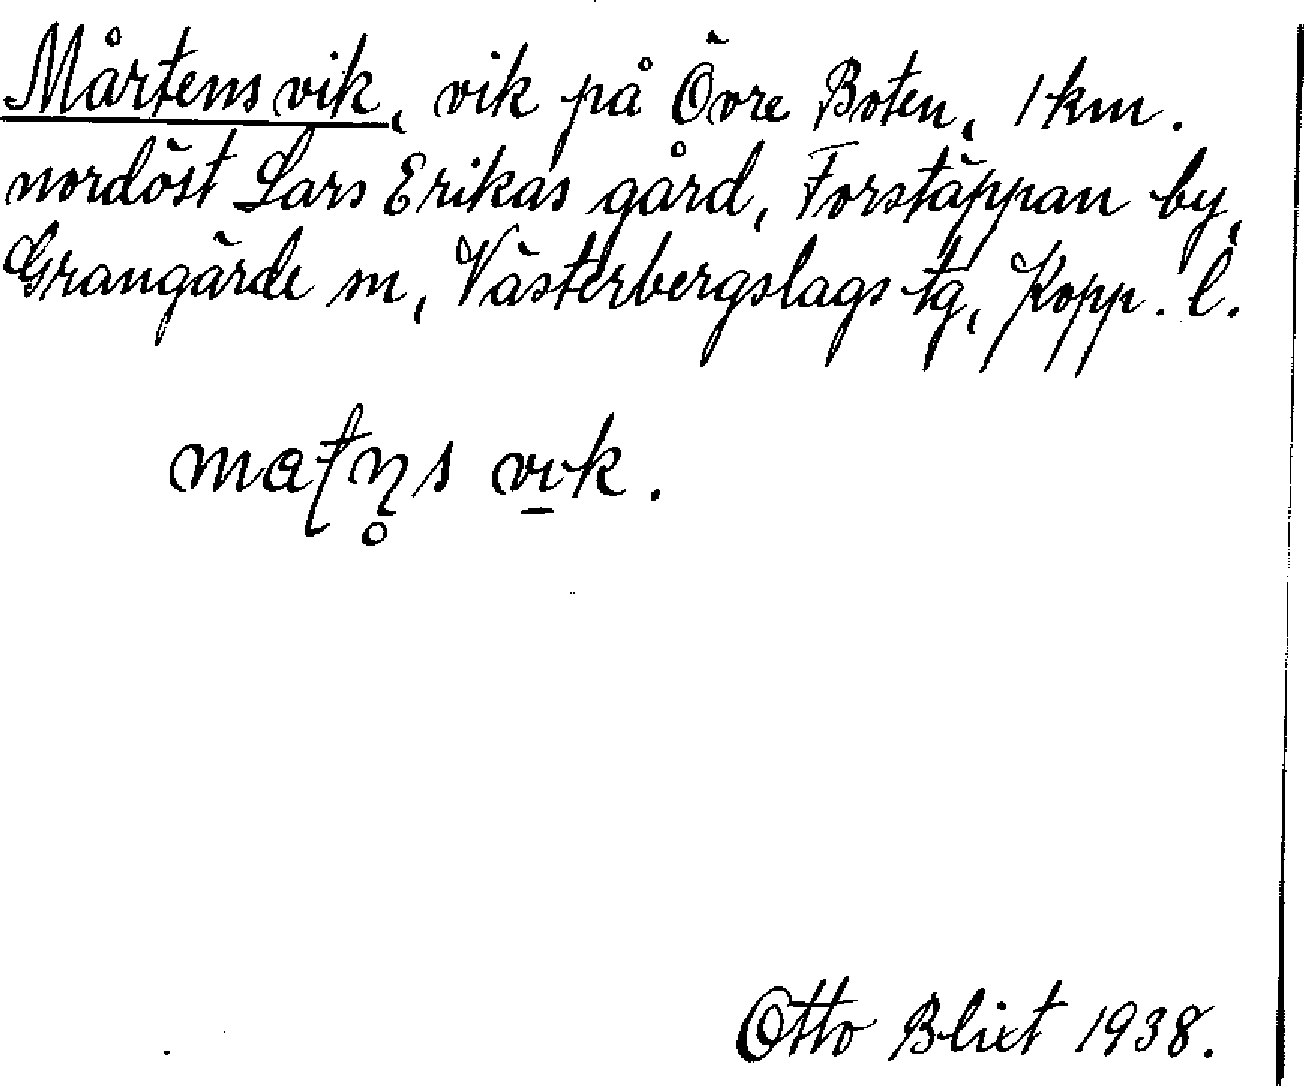 Mårtensvik, vik på Övre Boten, 1 km.
nordöst Lars Erikas gård, Forstäppan by,
Grangärde sn, Västerbergslags tg, Kopp. l.
maʈɳ̥s vi̱k.
Otto Blixt 1938.